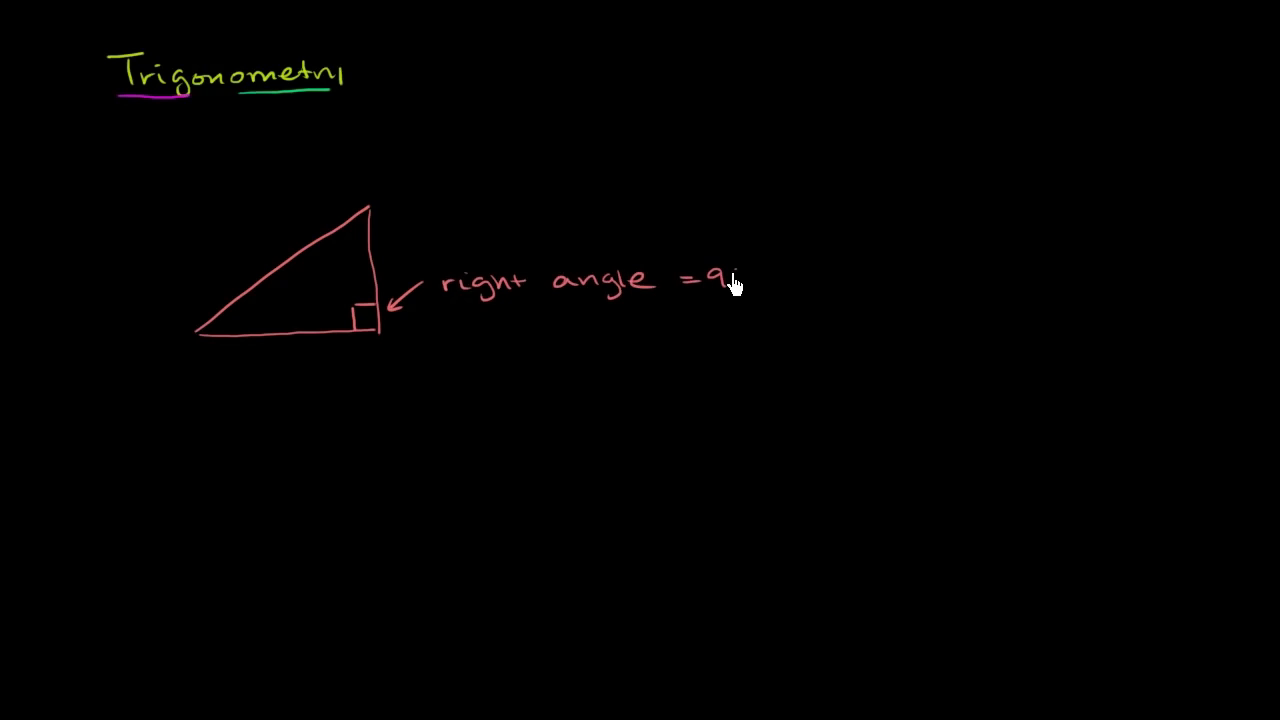 Trigonometry
right angle = 9